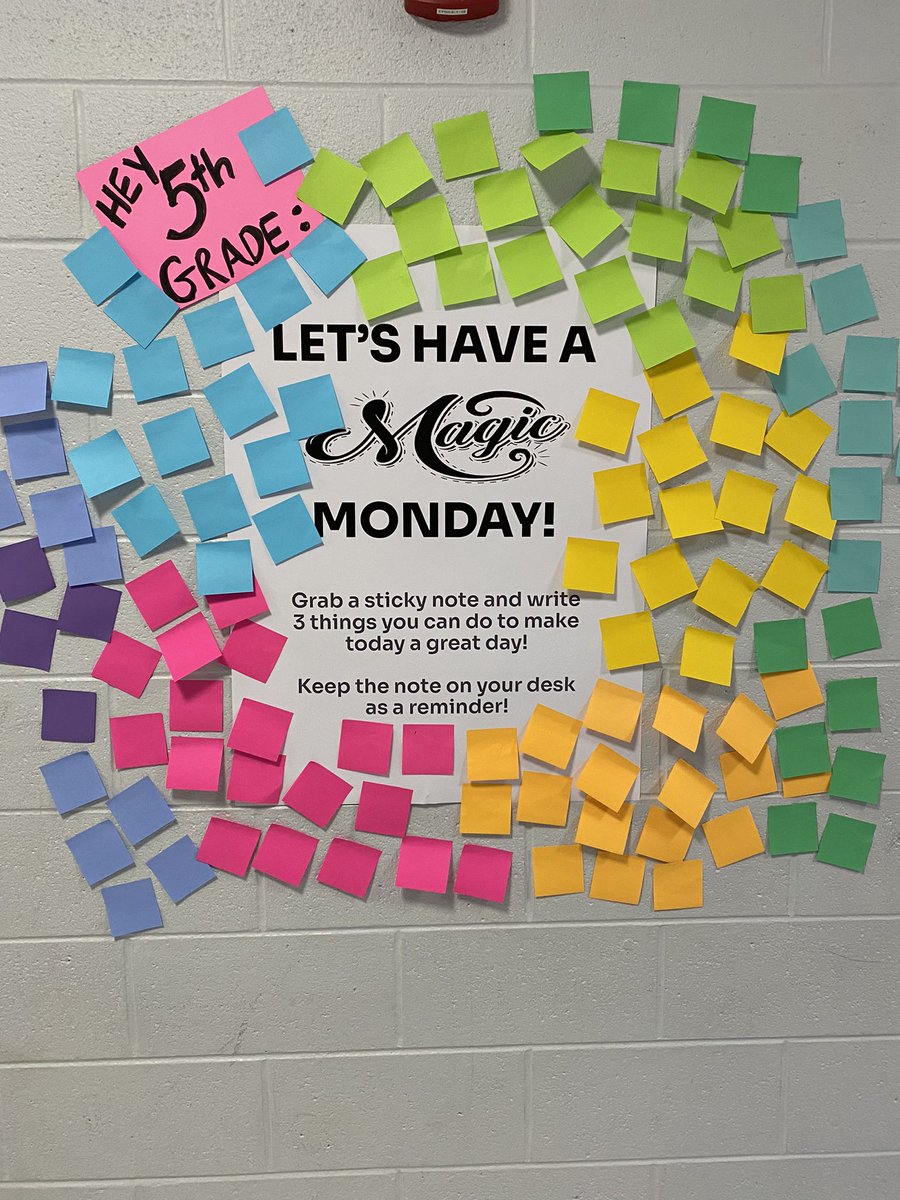 HEY
5th
GRADE:
LET'S HAVE A
Magic
MONDAY!
Grab a sticky note and write
3 things you can do to make
today a great day!
Keep the note on your desk
as a reminder!